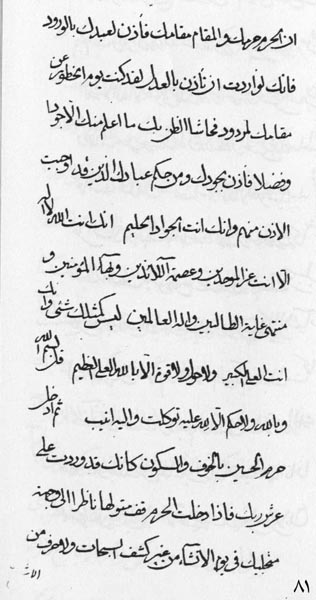 ان الحرم حرمك والمقام مقامك فأذن لعبدك بالورود
فانك لو اردت ان تأذن بالعدل لقد كنت يوم الخلق عن
مقامك لمردود فحاشا الظن بك ما اعلم منك الا جودا
وفضلا فأذن بجودك ومن حكم عبادك الذين قد اوجبت
الاذن منهم وانك انت الجواد الحليم انك انت الله لا اله
الا انت عز الموحدين وعصمة اللائذين وبهاء المؤمنين و
منتهى غاية الطالبين واله العالمين ليس كمثلك شئ وانك
انت العلي الكبير ولا حول ولا قوة الا بالله العلي العظيم قل بسم الله
وبالله ولا حكم الا لله عليه توكلت واليه انيب ثم ادخل
حرم الحسين بالخوف والسكون كانك قد وردت على
عرش ربك فاذا دخلت الحرم فقف متولها ناظرا الى وجهة
متجليك في يوم الانشاء من غير كشف السبحات ولا حرف من
الاش
٨١